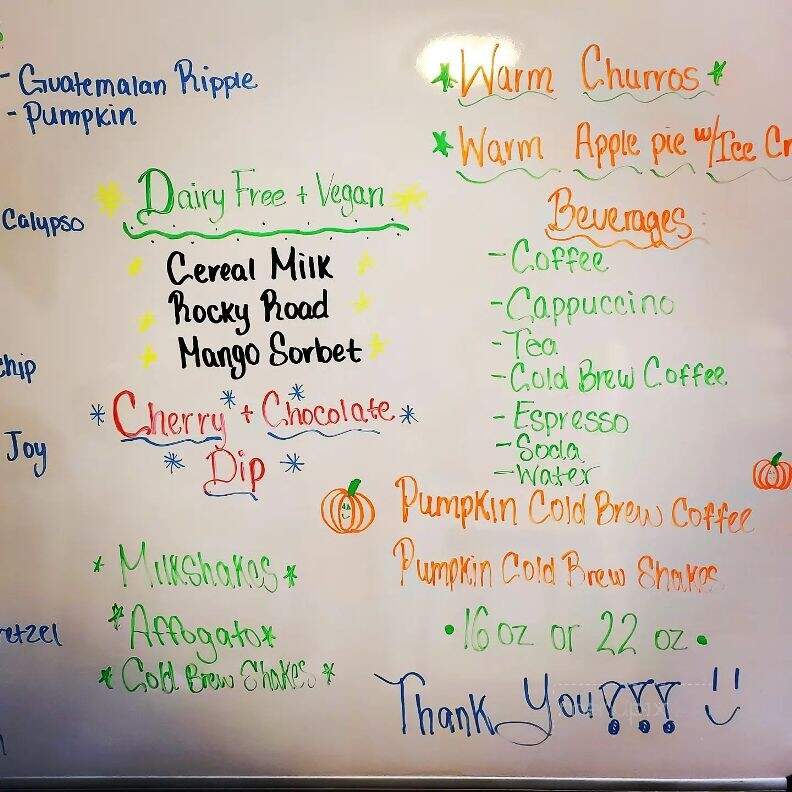 - Guatemalan Ripple
- Pumpkin
Calypso
hip
Joy
etzel
Dairy Free + Vegan
Cereal Milk
Rocky Road
Mango Sorbet
Cherry + Chocolate
Dip
Milkshakes
Affogato
Cold Brew Shakes
Warm Churros
Warm Apple pie w/Ice Cr
Beverages
- Coffee
- Cappuccino
- Tea
- Cold Brew Coffee
- Espresso
- Soda
- Water
Pumpkin Cold Brew Coffee
Pumpkin Cold Brew Shakes
• 16 oz or 22 oz •
Thank You!!!